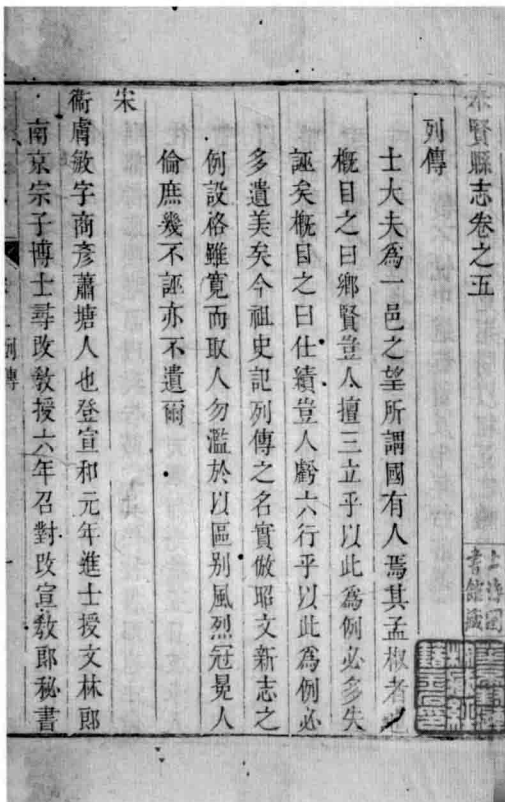 奉賢縣志卷之五
列傳
士大夫爲一邑之望所謂國有人焉其孟椒者也
概目之曰鄉賢豈人擅三立乎以此爲例必多失
誣矣概目之曰仕績豈人虧六行乎以此爲例必
多遺美矣今祖史記列傳之名實倣昭文新志之
例設格雖寬而取人勿濫於以區别風烈冠冕人
倫庶幾不誣亦不遺爾
宋
衞膚敏字商彥蕭塘人也登宣和元年進士授文林郎
南京宗子博士尋改敎授六年召對改宣敎郎秘書
列傳
上海圖
書館藏